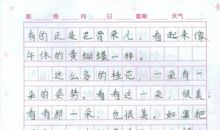 第 周 月 日 星期 天气
有的还是花骨朵儿，看起来像
午休的黄蝴蝶一样。
这么多的桂花，一朵有一
朵的姿势。看看这一朵，很美，
看看那一朵，也很美，如果把